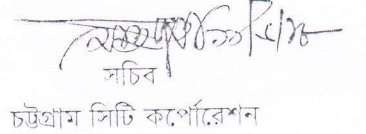 সচিব
চট্টগ্রাম সিটি কর্পোরেশন